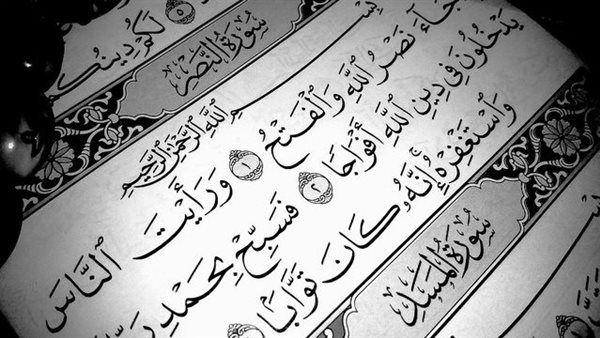 ٥ لَكُمْ دِينُكُ
سُورَةُ النَّصْرِ
بِسْمِ ٱللَّهِ ٱلرَّحْمَٰنِ ٱلرَّحِيمِ
جَآءَ نَصْرُ ٱللَّهِ وَٱلْفَتْحُ ١ وَرَأَيْتَ ٱلنَّاسَ
يَدْخُلُونَ فِى دِينِ ٱللَّهِ أَفْوَاجًا ٢ فَسَبِّحْ بِحَمْدِ رَبِّ
وَٱسْتَغْفِرْهُ إِنَّهُۥ كَانَ تَوَّابًۢا
سُورَةُ المَسَدِ